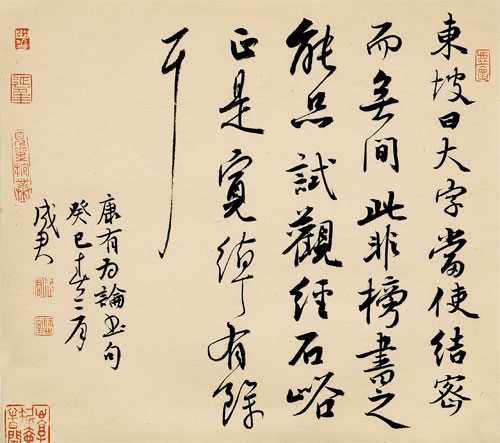 東坡曰大字當使結密
而無間此非榜書之
能品試觀經石峪
正是寬綽有餘
耳
康有為論書句
癸巳春二月
成君